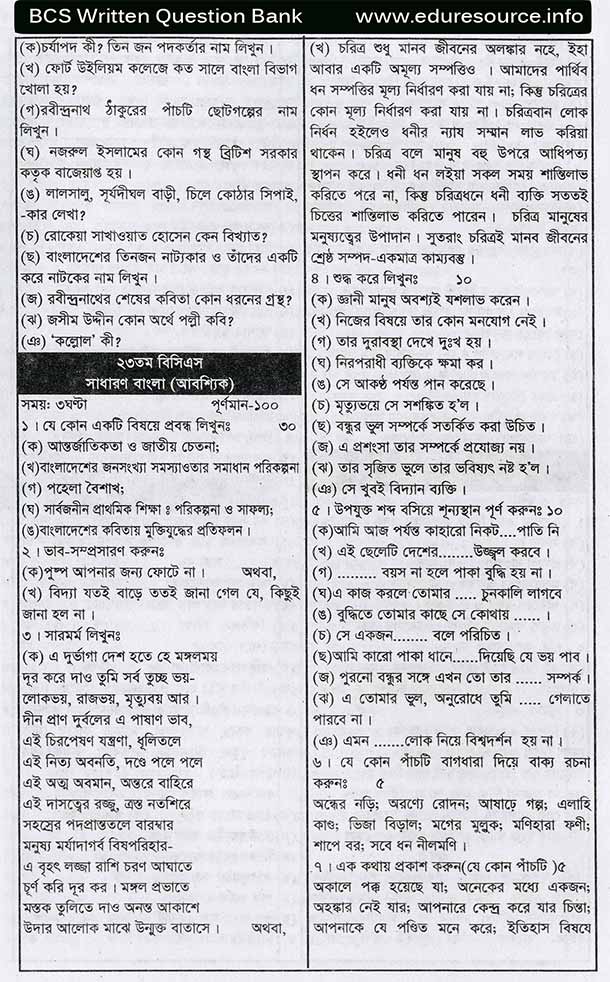 BCS Written Question Bank www.eduresource.info
(ক)চর্যাপদ কী? তিন জন পদকর্তার নাম লিখুন।
(খ) ফোর্ট উইলিয়ম কলেজে কত সালে বাংলা বিভাগ
খোলা হয়?
(গ)রবীন্দ্রনাথ ঠাকুরের পাঁচটি ছোটগল্পের নাম
লিখুন।
(ঘ) নজরুল ইসলামের কোন গন্থ ব্রিটিশ সরকার
কতৃক বাজেয়াপ্ত হয়।
(ঙ) লালসালু, সূর্যদীঘল বাড়ী, চিলে কোঠার সিপাই,
-কার লেখা?
(চ) রোকেয়া সাখাওয়াত হোসেন কেন বিখ্যাত?
(ছ) বাংলাদেশের তিনজন নাট্যকার ও তাঁদের একটি
করে নাটকের নাম লিখুন।
(জ) রবীন্দ্রনাথের শেষের কবিতা কোন ধরনের গ্রন্থ?
(ঝ) জসীম উদ্দীন কোন অর্থে পল্লী কবি?
(ঞ) ‘কল্লোল’ কী?
২৩তম বিসিএস
সাধারণ বাংলা (আবশ্যিক)
সময়: ৩ঘণ্টা পূর্ণমান-১০০
১। যে কোন একটি বিষয়ে প্রবন্ধ লিখুনঃ ৩০
(ক) আন্তর্জাতিকতা ও জাতীয় চেতনা;
(খ)বাংলাদেশের জনসংখ্যা সমস্যাওতার সমাধান পরিকল্পনা
(গ) পহেলা বৈশাখ;
(ঘ) সার্বজনীন প্রাথমিক শিক্ষা ঃ পরিকল্পনা ও সাফল্য;
(ঙ)বাংলাদেশের কবিতায় মুক্তিযুদ্ধের প্রতিফলন।
২। ভাব-সম্প্রসারণ করুনঃ
(ক)পুষ্প আপনার জন্য ফোটে না। অথবা,
(খ) বিদ্যা যতই বাড়ে ততই জানা গেল যে, কিছুই
জানা হল না।
৩। সারমর্ম লিখুনঃ
(ক) এ দুর্ভাগা দেশ হতে হে মঙ্গলময়
দূর করে দাও তুমি সর্ব তুচ্ছ ভয়-
লোকভয়, রাজভয়, মৃত্যুবয় আর।
দীন প্রাণ দুর্বলের এ পাষাণ ভাব,
এই চিরপেষণ যন্ত্রণা, ধূলিতলে
এই নিত্য অবনতি, দণ্ডে পলে পলে
এই অত্ম অবমান, অন্তরে বাহিরে
এই দাসত্বের রজ্জু, ত্রস্ত নতশিরে
সহস্রের পদপ্রান্ততলে বারম্বার
মনুষ্য মর্যাদাগর্ব বিষপরিহার-
এ বৃহৎ লজ্জা রাশি চরণ আঘাতে
চূর্ণ করি দূর কর। মঙ্গল প্রভাতে
মস্তক তুলিতে দাও অনন্ত আকাশে
উদার আলোক মাঝে উন্মুক্ত বাতাসে। অথবা,
(খ) চরিত্র শুধু মানব জীবনের অলঙ্কার নহে, ইহা
আবার একটি অমূল্য সম্পত্তিও । আমাদের পার্থিব
ধন সম্পত্তির মূল্য নির্ধারণ করা যায় না; কিন্তু চরিত্রের
কোন মূল্য নির্ধারণ করা যায় না। চরিত্রবান লোক
নির্ধন হইলেও ধনীর ন্যায় সম্মান লাভ করিয়া
থাকেন। চরিত্র বলে মানুষ বহু উপরে আধিপত্য
স্থাপন করে। ধনী ধন লইয়া সকল সময় শান্তিলাভ
করিতে পরে না, কিন্তু চরিত্রধনে ধনী ব্যক্তি সততই
চিত্তের শান্তিলাভ করিতে পারেন। চরিত্র মানুষের
মনুষ্যত্বের উপাদান। সুতরাং চরিত্রই মানব জীবনের
শ্রেষ্ঠ সম্পদ-একমাত্র কাম্যবস্তু।
৪। শুদ্ধ করে লিখুনঃ ১০
(ক) জ্ঞানী মানুষ অবশ্যই যশলাভ করেন।
(খ) নিজের বিষয়ে তার কোন মনযোগ নেই।
(গ) তার দুরাবস্থা দেখে দুঃখ হয়।
(ঘ) নিরপরাধী ব্যক্তিকে ক্ষমা কর।
(ঙ) সে আকণ্ঠ পর্যন্ত পান করেছে।
(চ) মৃত্যুভয়ে সে সশঙ্কিত হ'ল।
(ছ) বন্ধুর ভুল সম্পর্কে সতর্কিত করা উচিত।
(জ) এ প্রশংসা তার সম্পর্কে প্রযোজ্য নয়।
(ঝ) তার সৃজিত ভুলে তার ভবিষ্যৎ নষ্ট হ'ল।
(ঞ) সে খুবই বিদ্যান ব্যক্তি।
৫। উপযুক্ত শব্দ বসিয়ে শূন্যস্থান পূর্ণ করুনঃ ১০
(ক)আমি আজ পর্যন্ত কাহারো নিকট....পাতি নি
(খ) এই ছেলেটি দেশের........উজ্জ্বল করবে।
(গ) ......... বয়স না হলে পাকা বুদ্ধি হয় না।
(ঘ)এ কাজ করলে তোমার ..... চুনকালি লাগবে
(ঙ) বুদ্ধিতে তোমার কাছে সে কোথায় ......।
(চ) সে একজন........ বলে পরিচিত।
(ছ)আমি কারো পাকা ধানে......দিয়েছি যে ভয় পাব।
(জ) পুরনো বন্ধুর সঙ্গে এখন তো তার ...... সম্পর্ক।
(ঝ) এ তোমার ভুল, অনুরোধে তুমি ..... গেলাতে
পারবে না।
(ঞ) এমন ........লোক নিয়ে বিশ্বদর্শন হয় না।
৬। যে কোন পাঁচটি বাগধারা দিয়ে বাক্য রচনা
করুনঃ ৫
অন্ধের নড়ি; অরণ্যে রোদন; আষাঢ়ে গল্প; এলাহি
কাণ্ড; ভিজা বিড়াল; মগের মুলুক; মণিহারা ফণী;
শাপে বর; সবে ধন নীলমণি।
৭। এক কথায় প্রকাশ করুন(যে কোন পাঁচটি)৫
অকালে পক্ক হয়েছে যা; অনেকের মধ্যে একজন;
অহঙ্কার নেই যার; আপনারে কেন্দ্র করে যার চিন্তা;
আপনাকে যে পণ্ডিত মনে করে; ইতিহাস বিষয়ে